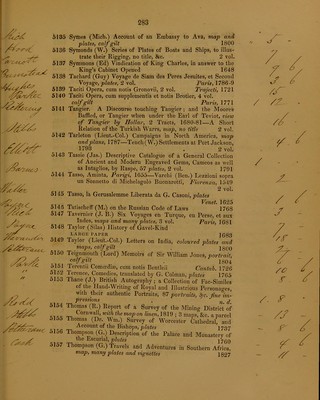 283
5135 Symes (Mich.) Account of an Embassy to Ava, map and
plates, calf gilt 1800
5136 Symonds (W.) Series of Plates of Boats and Ships, to illus-
trate their Rigging, no title, &c. 2 vol.
5137 Symmons (Ed) Vindication of King Charles, in answer to the
King's Cabinet Opened 1648
5138 Tachard (Guy) Voyage de Siam des Peres Jesuites, et Second
Voyage, plates, 2 vol. Paris, 1786-9
5139 Taciti Opera, cum notis Gronovii, 2 vol. Trajecti, 1721
5140 Taciti Opera, cum supplementis et notis Brotier, 4 vol.
calf gilt Paris, 1771
5141 Tangier. A Discourse touching Tangier; and the Moores
Baffled, or Tangier when under the Earl of Teviot, view
of Tangier by Hollar, 2 Tracts, 1680-81—A Short
Relation of the Turkish Warrs, map, no title 2 vol.
5142 Tarleton (Lieut.-Col.) Campaigns in North America, map
and plans, 1787—Tench (W.) Settlements at Port Jackson,
1793 2 vol.
5143 Tassie (Jas.) Descriptive Catalogue of a General Collection
of Ancient and Modern Engraved Gems, Cameos as well
as Intaglios, by Raspe, 57 plates, 2 vol. 1791
5144 Tasso, Aminta, Parigi, 1655—Varchi (Ben.) Lezzioni sopra
un Sonnetto di Michelagnolo Buonarotti, Fiorenza, 1549
2 vol.
5145 Tasso, la Gerusalemme Liberata da G. Casoni, plates
Venet. 1625
5146 Tatischeff (M.) on the Russian Code of Laws 1768
5147 Tavernier (J. B.) Six Voyages en Turque, en Perse, et aux
Indes, maps and many plates, 3 vol. Paris, 1681
5148 Taylor (Silas) History of Gavel-Kind
LARGE PAPER 1663
5149 Taylor (Lieut.-Col.) Letters on India, coloured plates and
maps, calf gilt 1800
5150 Teignmouth (Lord) Memoirs of Sir William Jones, portrait,
calf gilt 1804
5151 Terentii Comœdiæ, cum notis Bentleii Cantab. 1726
5152 Terence, Comedies, translated by G. Colman, plates 1765
5153 Thane (J.) British Autography; a Collection of Fac-Similes
of the Hand-Writing of Royal and Illustrious Personages,
with their authentic Portraits, 87 portraits, &c. fine im-
pressions n. d.
5154 Thomas (R.) Report of a Survey of the Mining District of
Cornwall, with the map on linen, 1819; 3 maps, &c. a parcel
5155 Thomas (Dr. Wm.) Survey of Worcester Cathedral, and
Account of the Bishops, plates 1737
5156 Thompson (G.) Description of the Palace and Monastery of
the Escurial, plates 1760
5157 Thompson (G.) Travels and Adventures in Southern Africa,
map, many plates and vignettes 1827